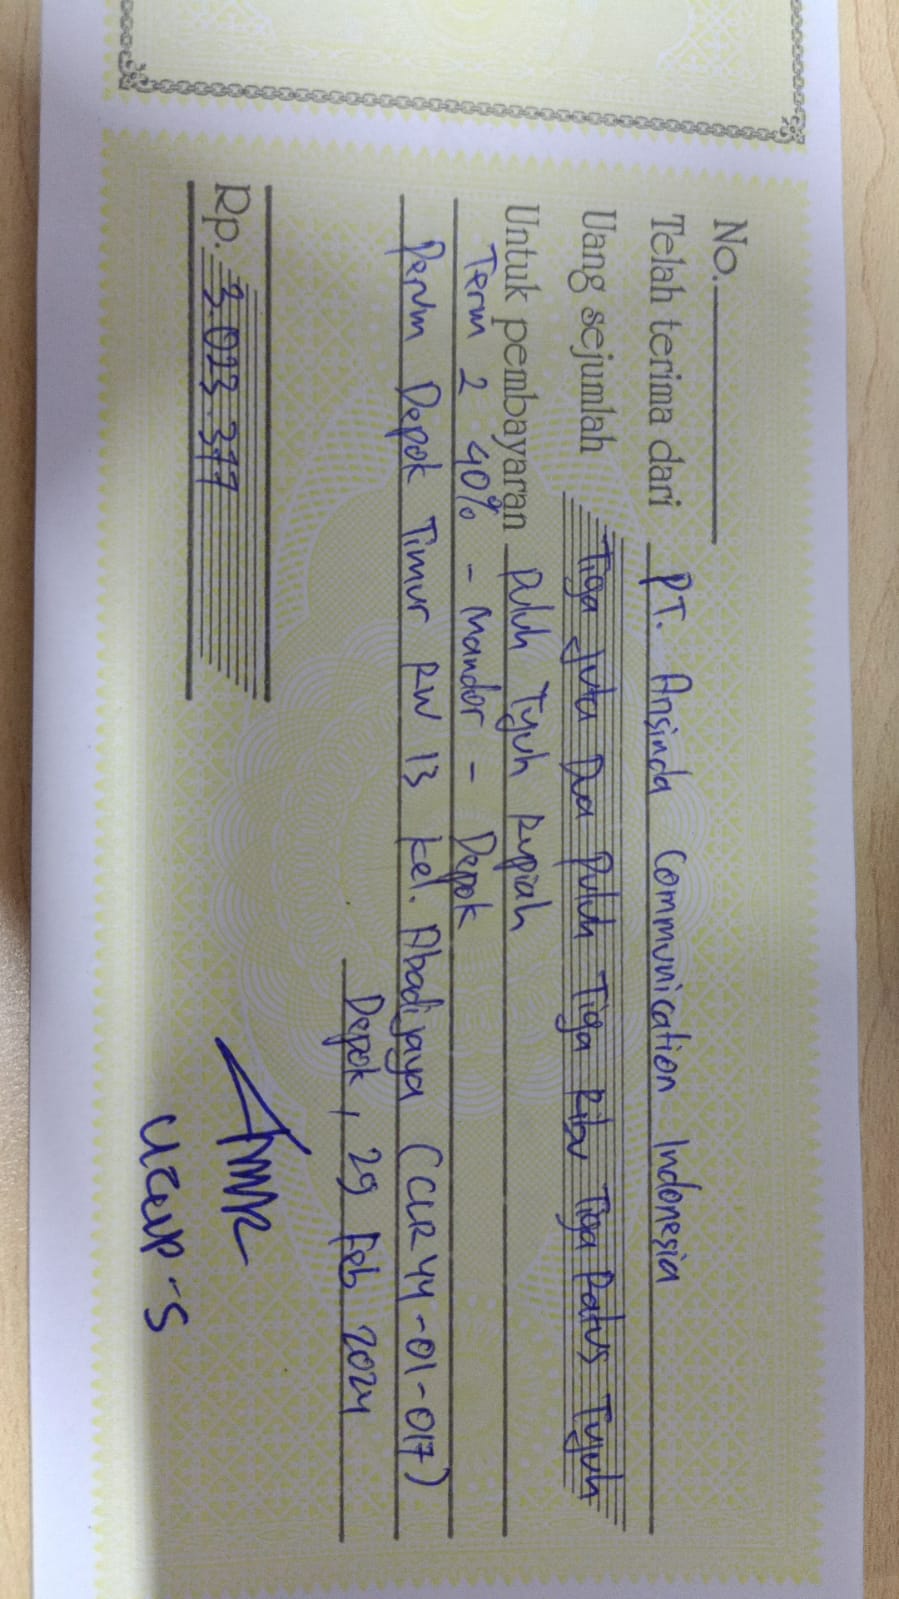 No.
Telah terima dari PT. Ansinda Communication Indonesia
Uang sejumlah Tiga Juta Dua Puluh Tiga Ribu Tiga Ratus Tujuh
Untuk pembayaran Puluh Tujuh Rupiah
Term 2 40% - Mandor - Depok
Perum Depok Timur RW 13 Kel. Abadijaya (CLR44-01-017)
Depok, 29 Feb 2024
Rp. 3.023.377
Ucup-S